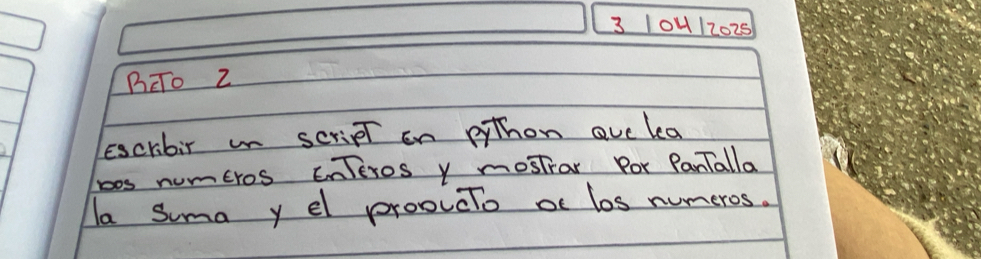 3 / 04 / 2025
RETO 2
Escribir un script en python que lea
dos numeros enteros y mostrar por pantalla
la suma y el producto de los numeros.